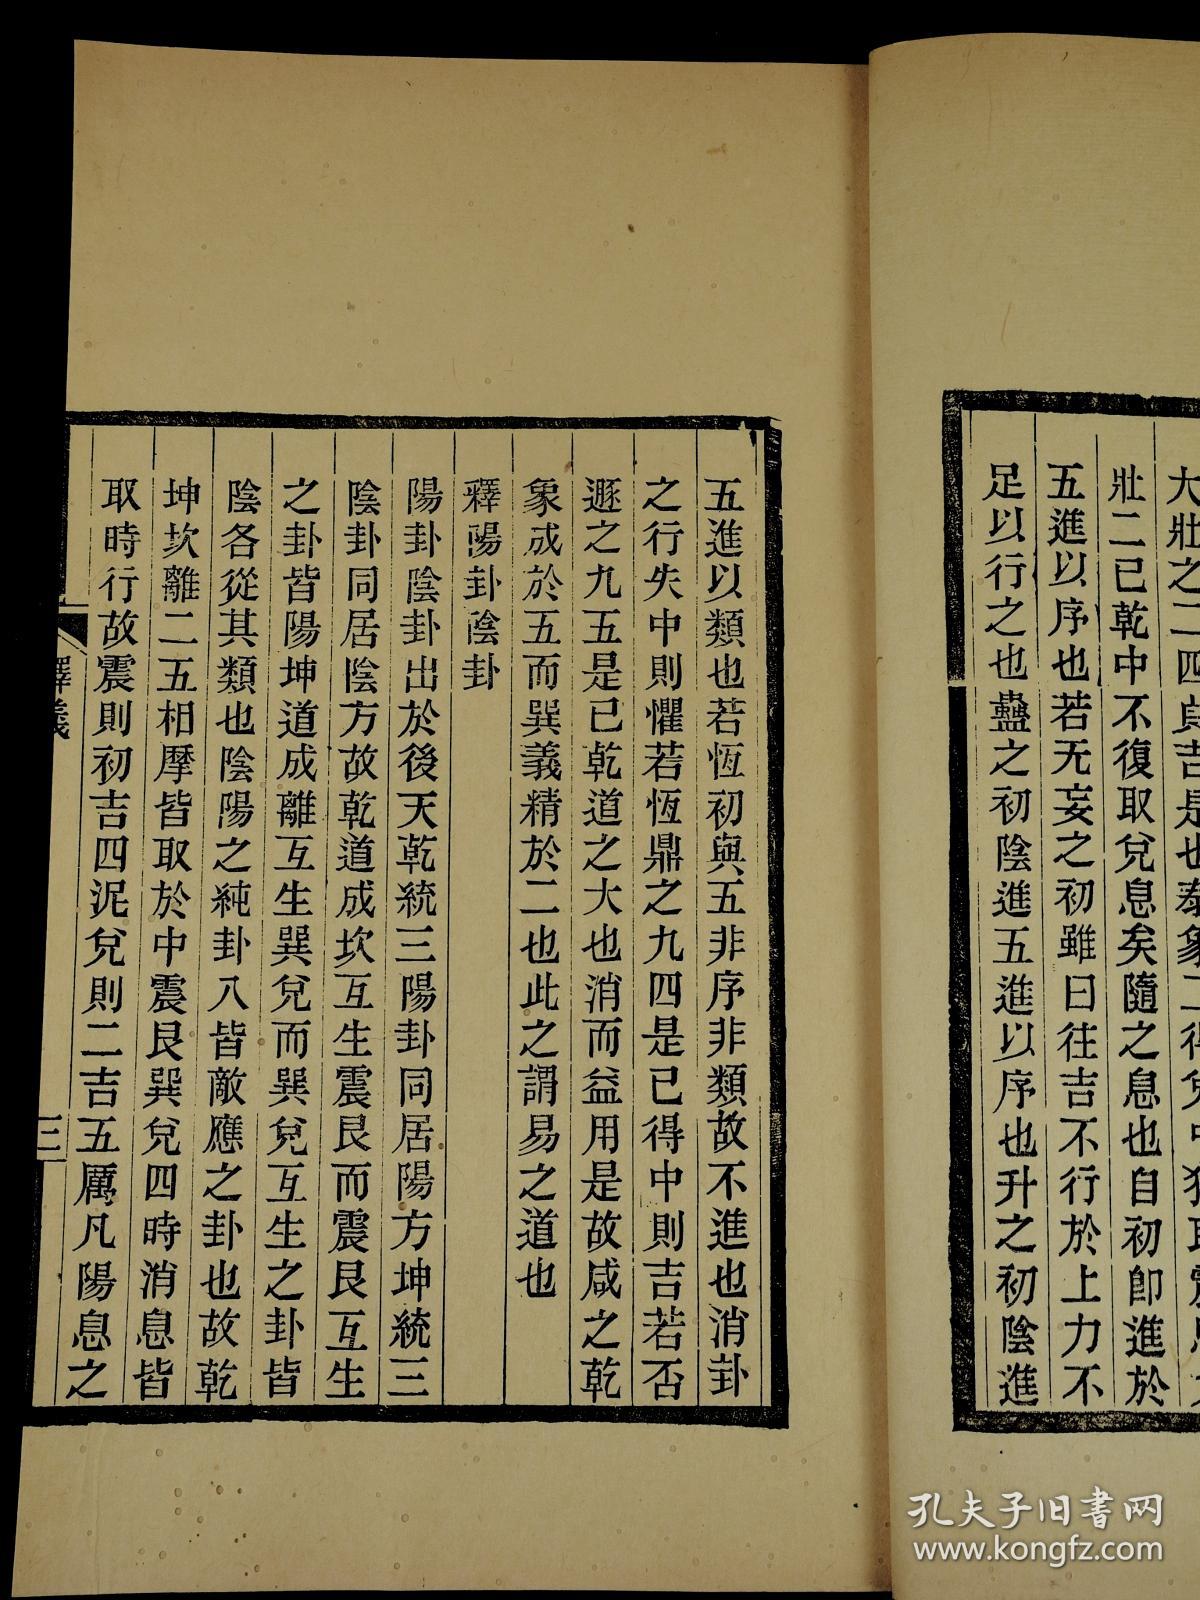 大壯之二四貞吉是也泰象二得兌中
壯二已乾中不復取兌息矣隨之息也自初卽進於
五進以序也若无妄之初雖曰往吉不行於上力不
足以行之也蠱之初陰進五進以序也升之初陰進
五進以類也若恆初與五非序非類故不進也消卦
之行失中則懼若恆鼎之九四是已得中則吉若否
遯之九五是已乾道之大也消而益用是故咸之乾
象成於五而巽義精於二也此之謂易之道也
釋陽卦陰卦
陽卦陰卦出於後天乾統三陽卦同居陽方坤統三
陰卦同居陰方故乾道成坎互生震艮而震艮互生
之卦皆陽坤道成離互生巽兌而巽兌互生之卦皆
陰各從其類也陰陽之純卦八皆敵應之卦也故乾
坤坎離二五相摩皆取於中震艮巽兌四時消息皆
取時行故震則初吉四泥兌則二吉五厲凡陽息之
釋義
三
孔夫子旧書网
www.kongfz.com